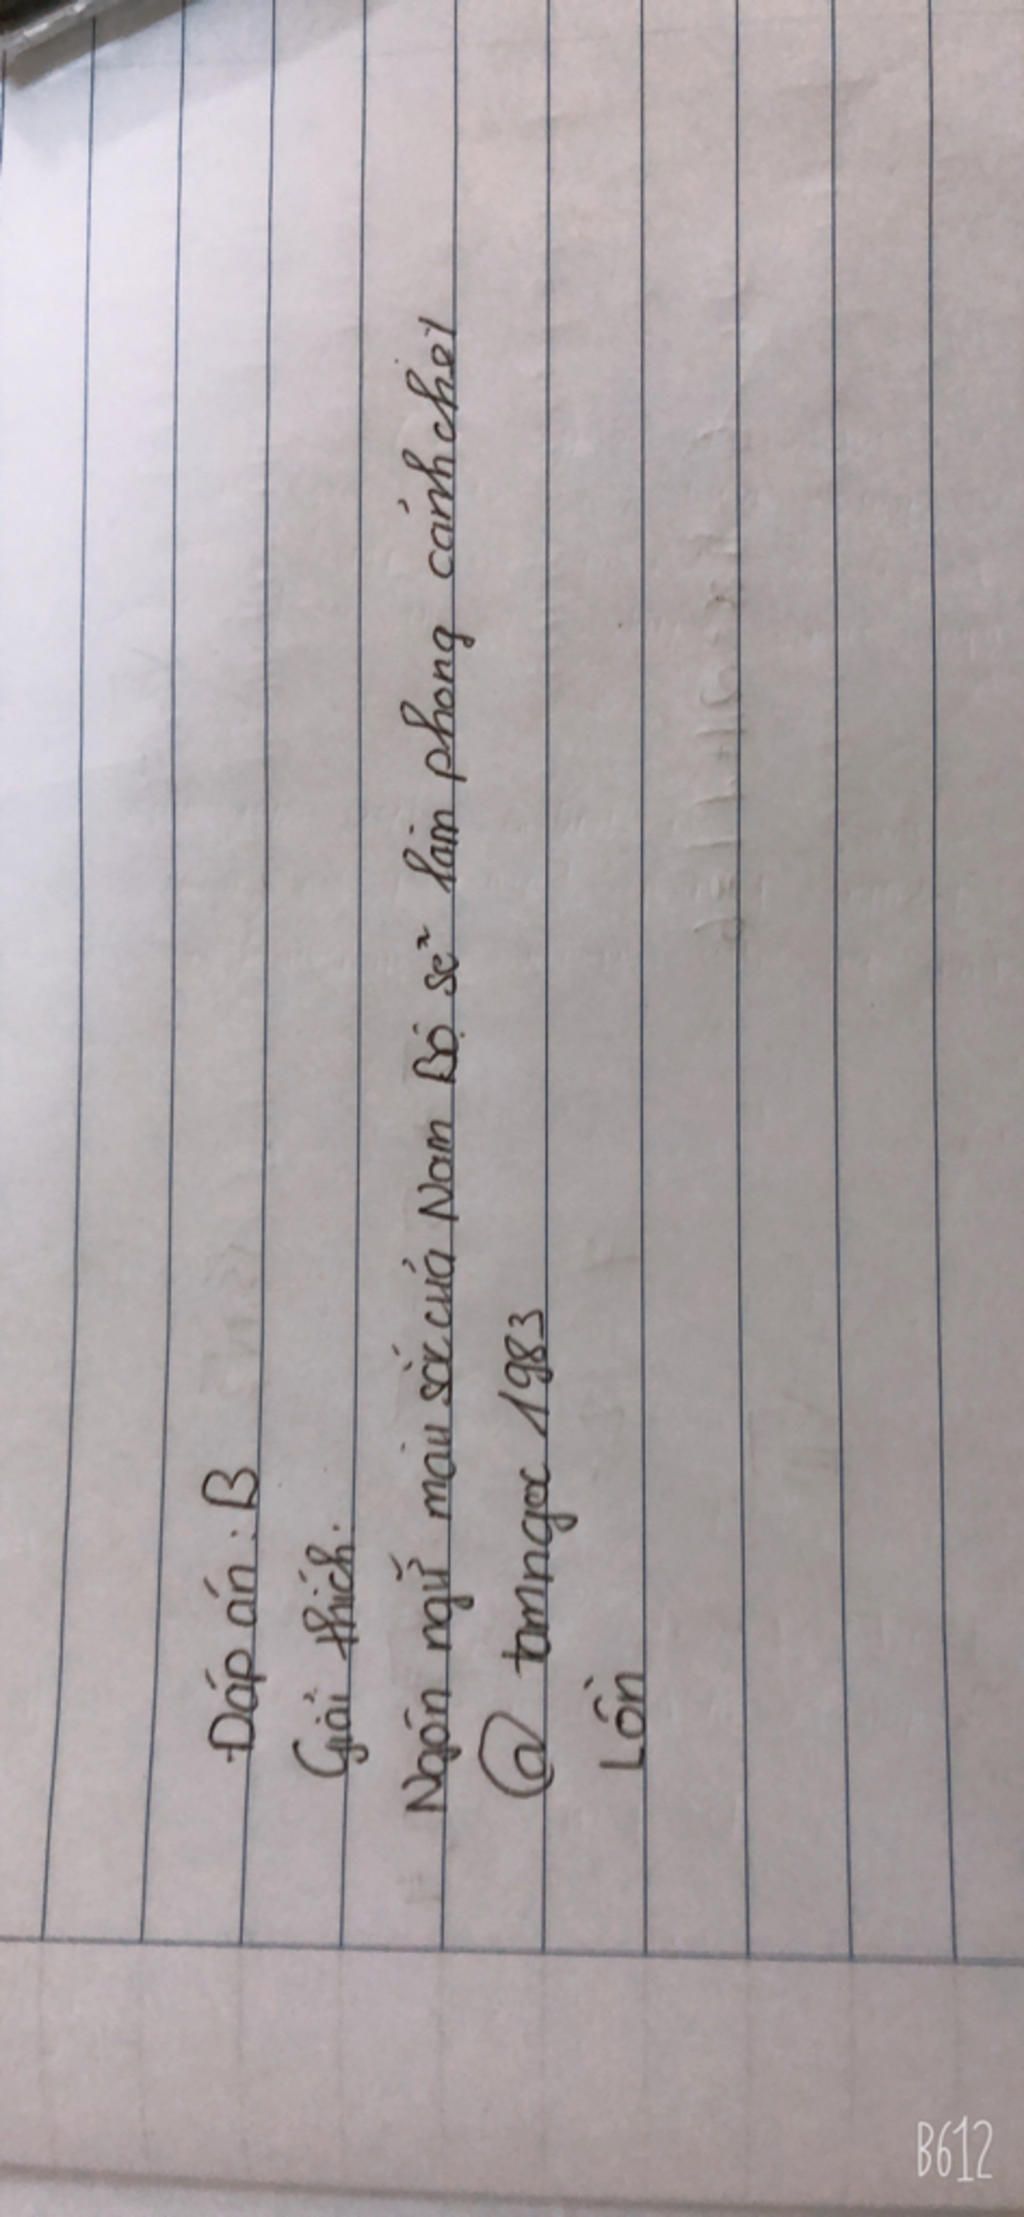 Đáp án: B
Giải thích:
Ngôn ngữ màu sắc của Nam Bộ sẽ làm phong cảnh
@ tamngoc 1983
Lồn
B612